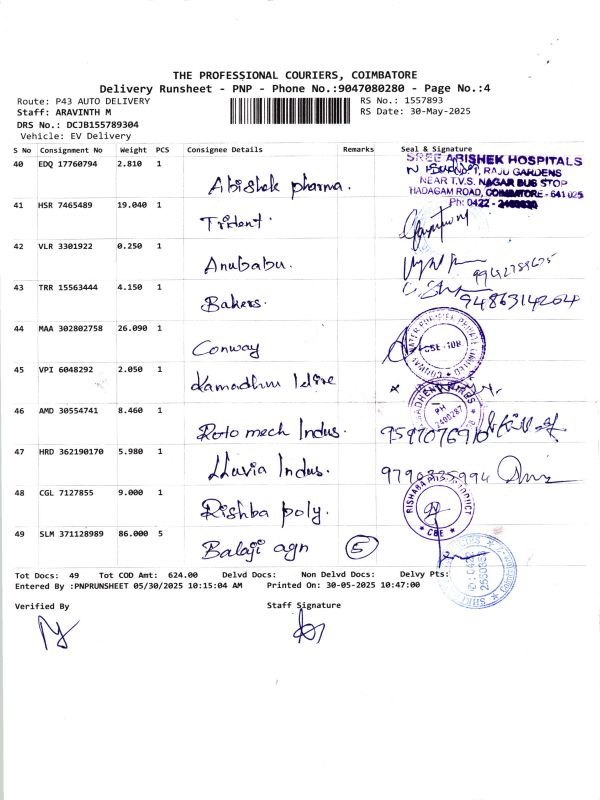 THE PROFESSIONAL COURIERS, COIMBATORE
Delivery Runsheet - PNP - Phone No.:9047080280 - Page No.:4
Route: P43 AUTO DELIVERY
RS No.: 1557893
Staff: ARAVINTH M
RS Date: 30-May-2025
DRS No.: DCJB155789304
Vehicle: EV Delivery
S No Consignment No Weight PCS Consignee Details Remarks Seal & Signature
40 EDQ 17760794 2.810 1 Abishek pharma.
SREE ABISHEK HOSPITALS
RAJU GARDENS
NEAR T.V.S. NAGAR BUS STOP
THADAGAM ROAD, COIMBATORE - 641 025
Ph: 0422 -
41 HSR 7465489 19.040 1 Trident.
42 VLR 3301922 0.250 1 Anubabu.
43 TRR 15563444 4.150 1 Bakers. 9486314204
44 MAA 302802758 26.090 1 Conway
45 VPI 6048292 2.050 1 Kamadhnu
46 AMD 30554741 8.460 1 Roto mech Indus.
47 HRD 362190170 5.980 1 Lluvia Indus.
48 CGL 7127855 9.000 1 Rishba poly.
RISHABA
CBE
49 SLM 371128989 86.000 5 Balaji agn 5
Tot Docs: 49 Tot COD Amt: 624.00 Delvd Docs: Non Delvd Docs: Delvy Pts:
Entered By :PNPRUNSHEET 05/30/2025 10:15:04 AM Printed On: 30-05-2025 10:47:00
Verified By Staff Signature